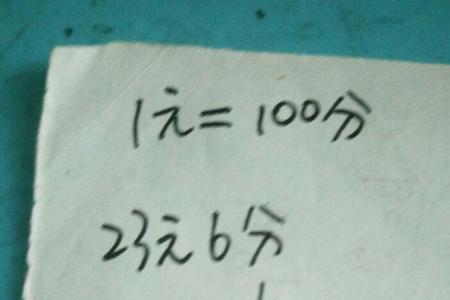 1元=100分
23元6分